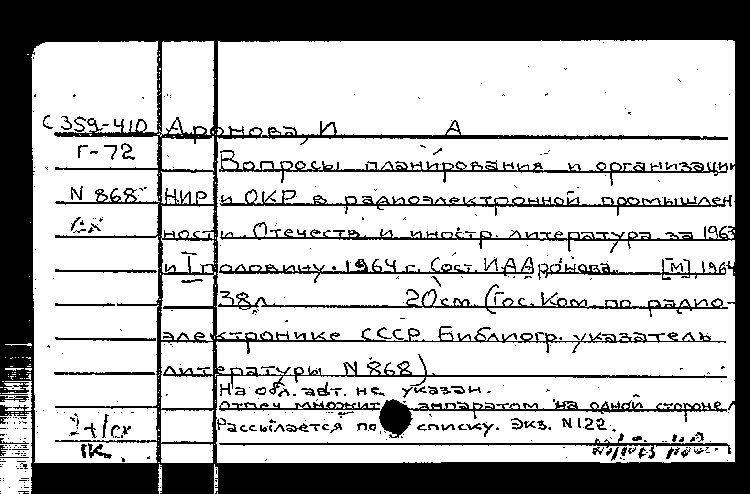 С 359-410 Аронова, И А
Г-72 Вопросы планирования и организации
N 868 НИР и ОКР в радиоэлектронной промышлен-
ности. Отечеств. и иностр. литература за 1963
и I половину. 1964 г. Сост. И.А.Аронова. [М], 1964
38л. 20см. (Гос. Ком. по радио-
электронике СССР. Библиогр. указатель
литературы N 868).
На обл. авт. не указан.
Отпеч множит аппаратом на одной стороне л
Рассылается по списку. Экз. N122.